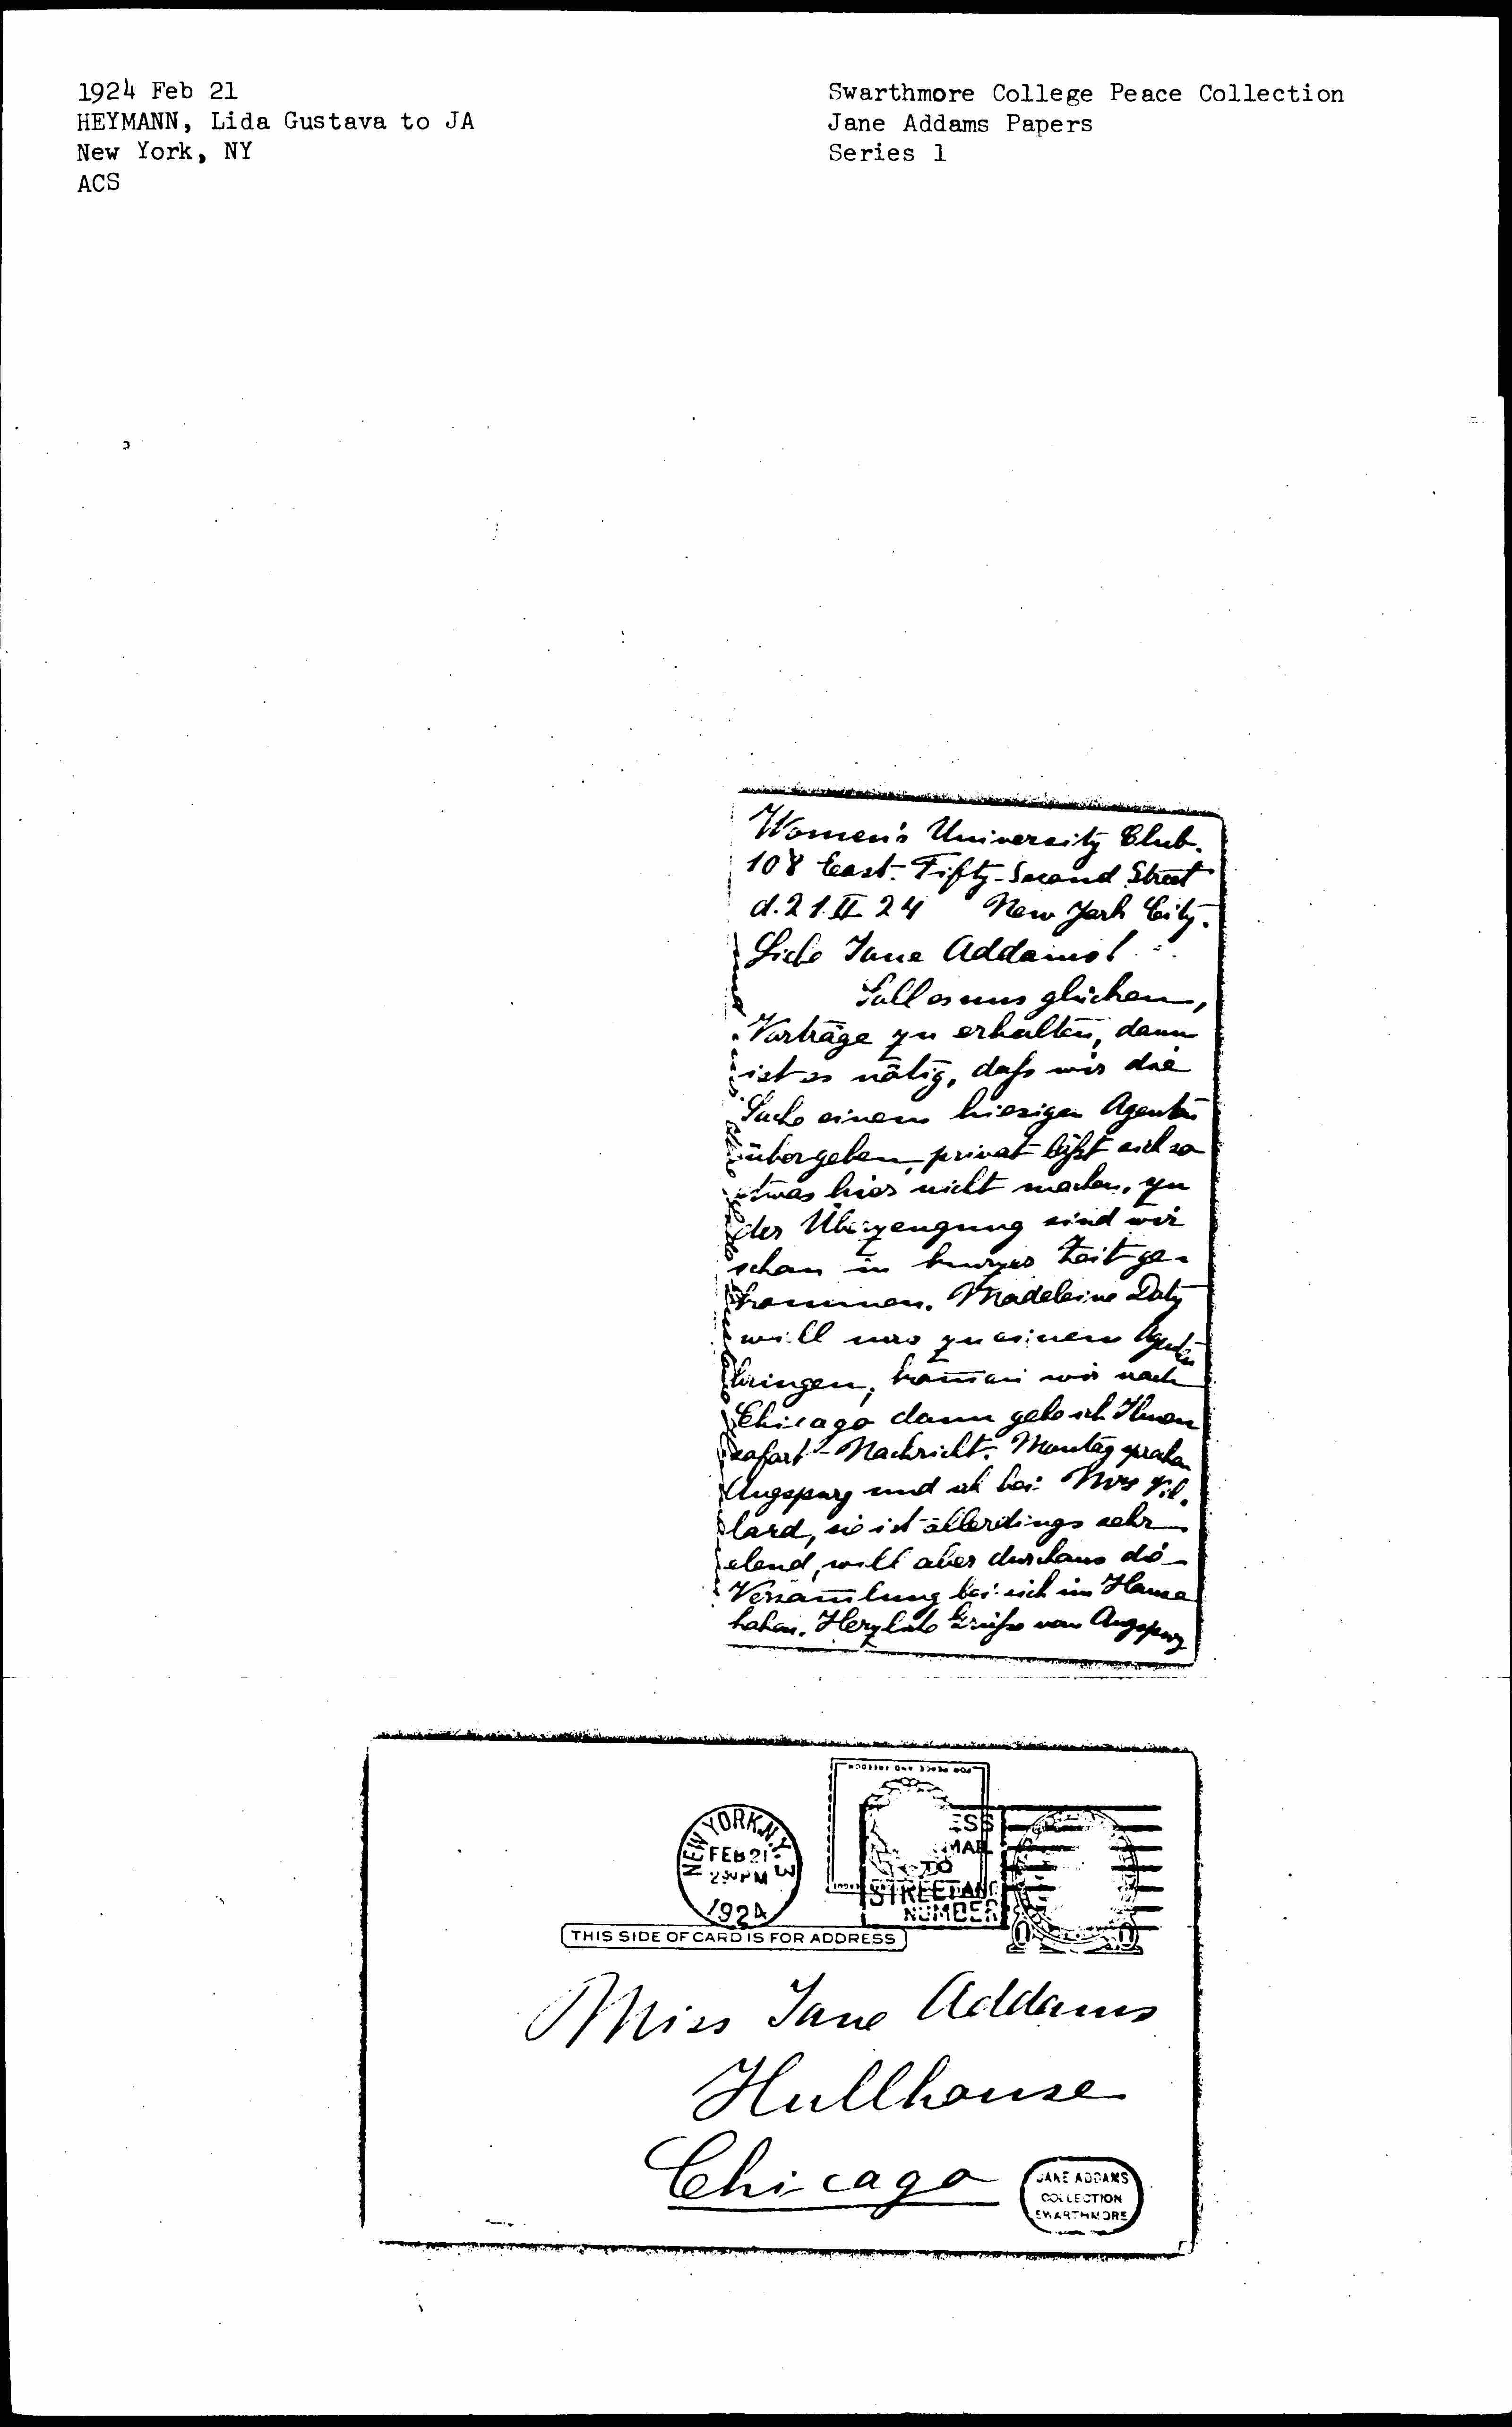 1924 Feb 21
HEYMANN, Lida Gustava to JA
New York, NY
ACS
Swarthmore College Peace Collection
Jane Addams Papers
Series 1
Women's University Club.
108 East. Fifty-Second Street
d. 21. II 24 New York City.
Liebe Jane Addams!
Soll es uns glücken,
Vorträge zu erhalten, dann
ist es nötig, dass wir die
Sache einem hiesigen Agenten
übergeben, privat läßt sich so
etwas hier nicht machen, zu
der Überzeugung sind wir
schon in kurzer Zeit ge-
kommen. Madeleine Doty
will uns zu einem Agenten
bringen, kom̄en wir nach
Chicago dann gebe ich Ihnen
sofort Nachricht. Montag sprechen
Augspurg und ich bei Mrs Vil-
lard, sie ist allerdings sehr
elend, will aber durchaus die
Versam̄lung bei sich im Hause
haben. Herzliche Grüße von Augspurg
NEW YORK, N.Y. 3
FEB 21
230 PM
1924
MAIL
TO
STREET AND
NUMBER
THIS SIDE OF CARD IS FOR ADDRESS
Miss Jane Addams
Hullhouse
Chicago
JANE ADDAMS
COLLECTION
SWARTHMORE